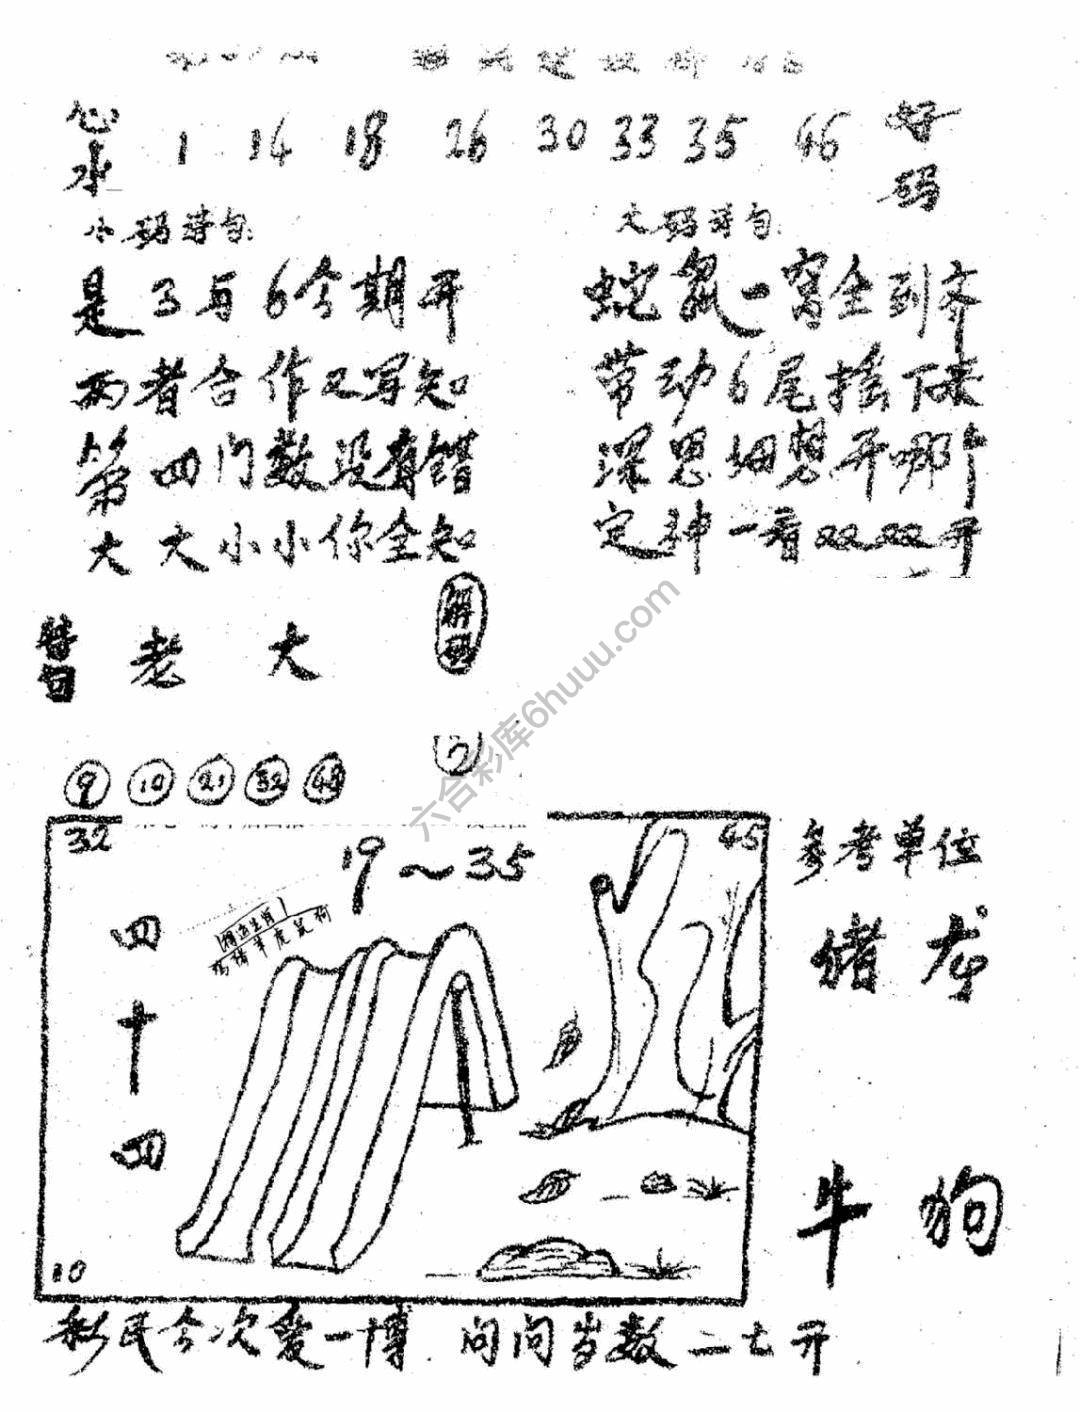 心水 1 14 18 26 30 33 35 46 好码
小码诗句:
是3与6今期开
两者合作又写知
第四门数没有错
大大小小你全知
大码诗句:
蛇鼠一窝全到齐
带动6尾摇下来
深思细想开哪个
定神一看双双开
老大
解码
9 10 21 32
六合彩库6huuu.com
32
19~35
45
四十四
相连生肖
羊虎鼠狗
10
参考单位
猪龙
牛狗
彩民今次爱一博 问问岁数二七开